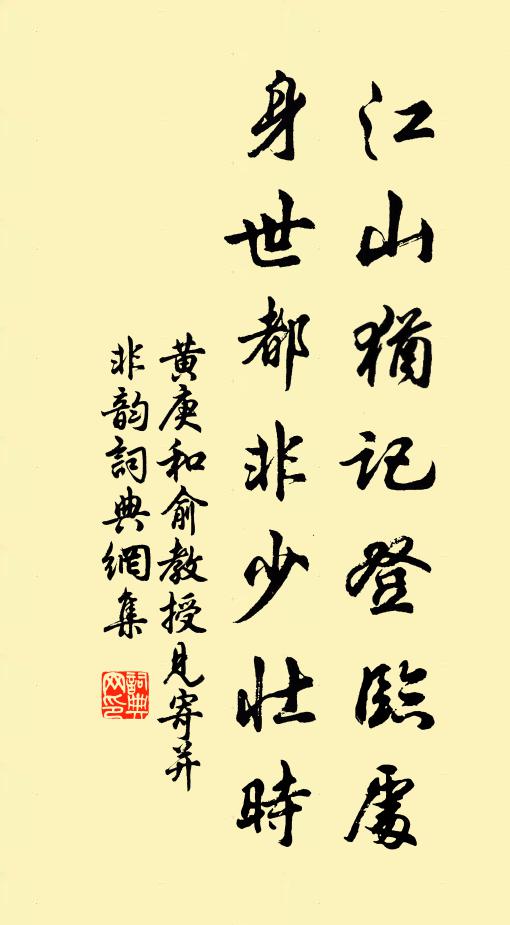 江山猶記登臨處
身世都非少壯時
黃庚和俞教授見寄并
非韵詞典網集
詞典網印